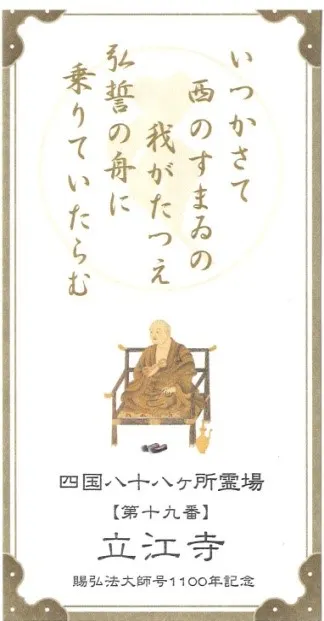 いつかさて
西のすまゐの
我がたつえ
弘誓の舟に
乗りていたらむ
四国八十八ヶ所霊場
【第十九番】
立江寺
賜弘法大師号1100年記念